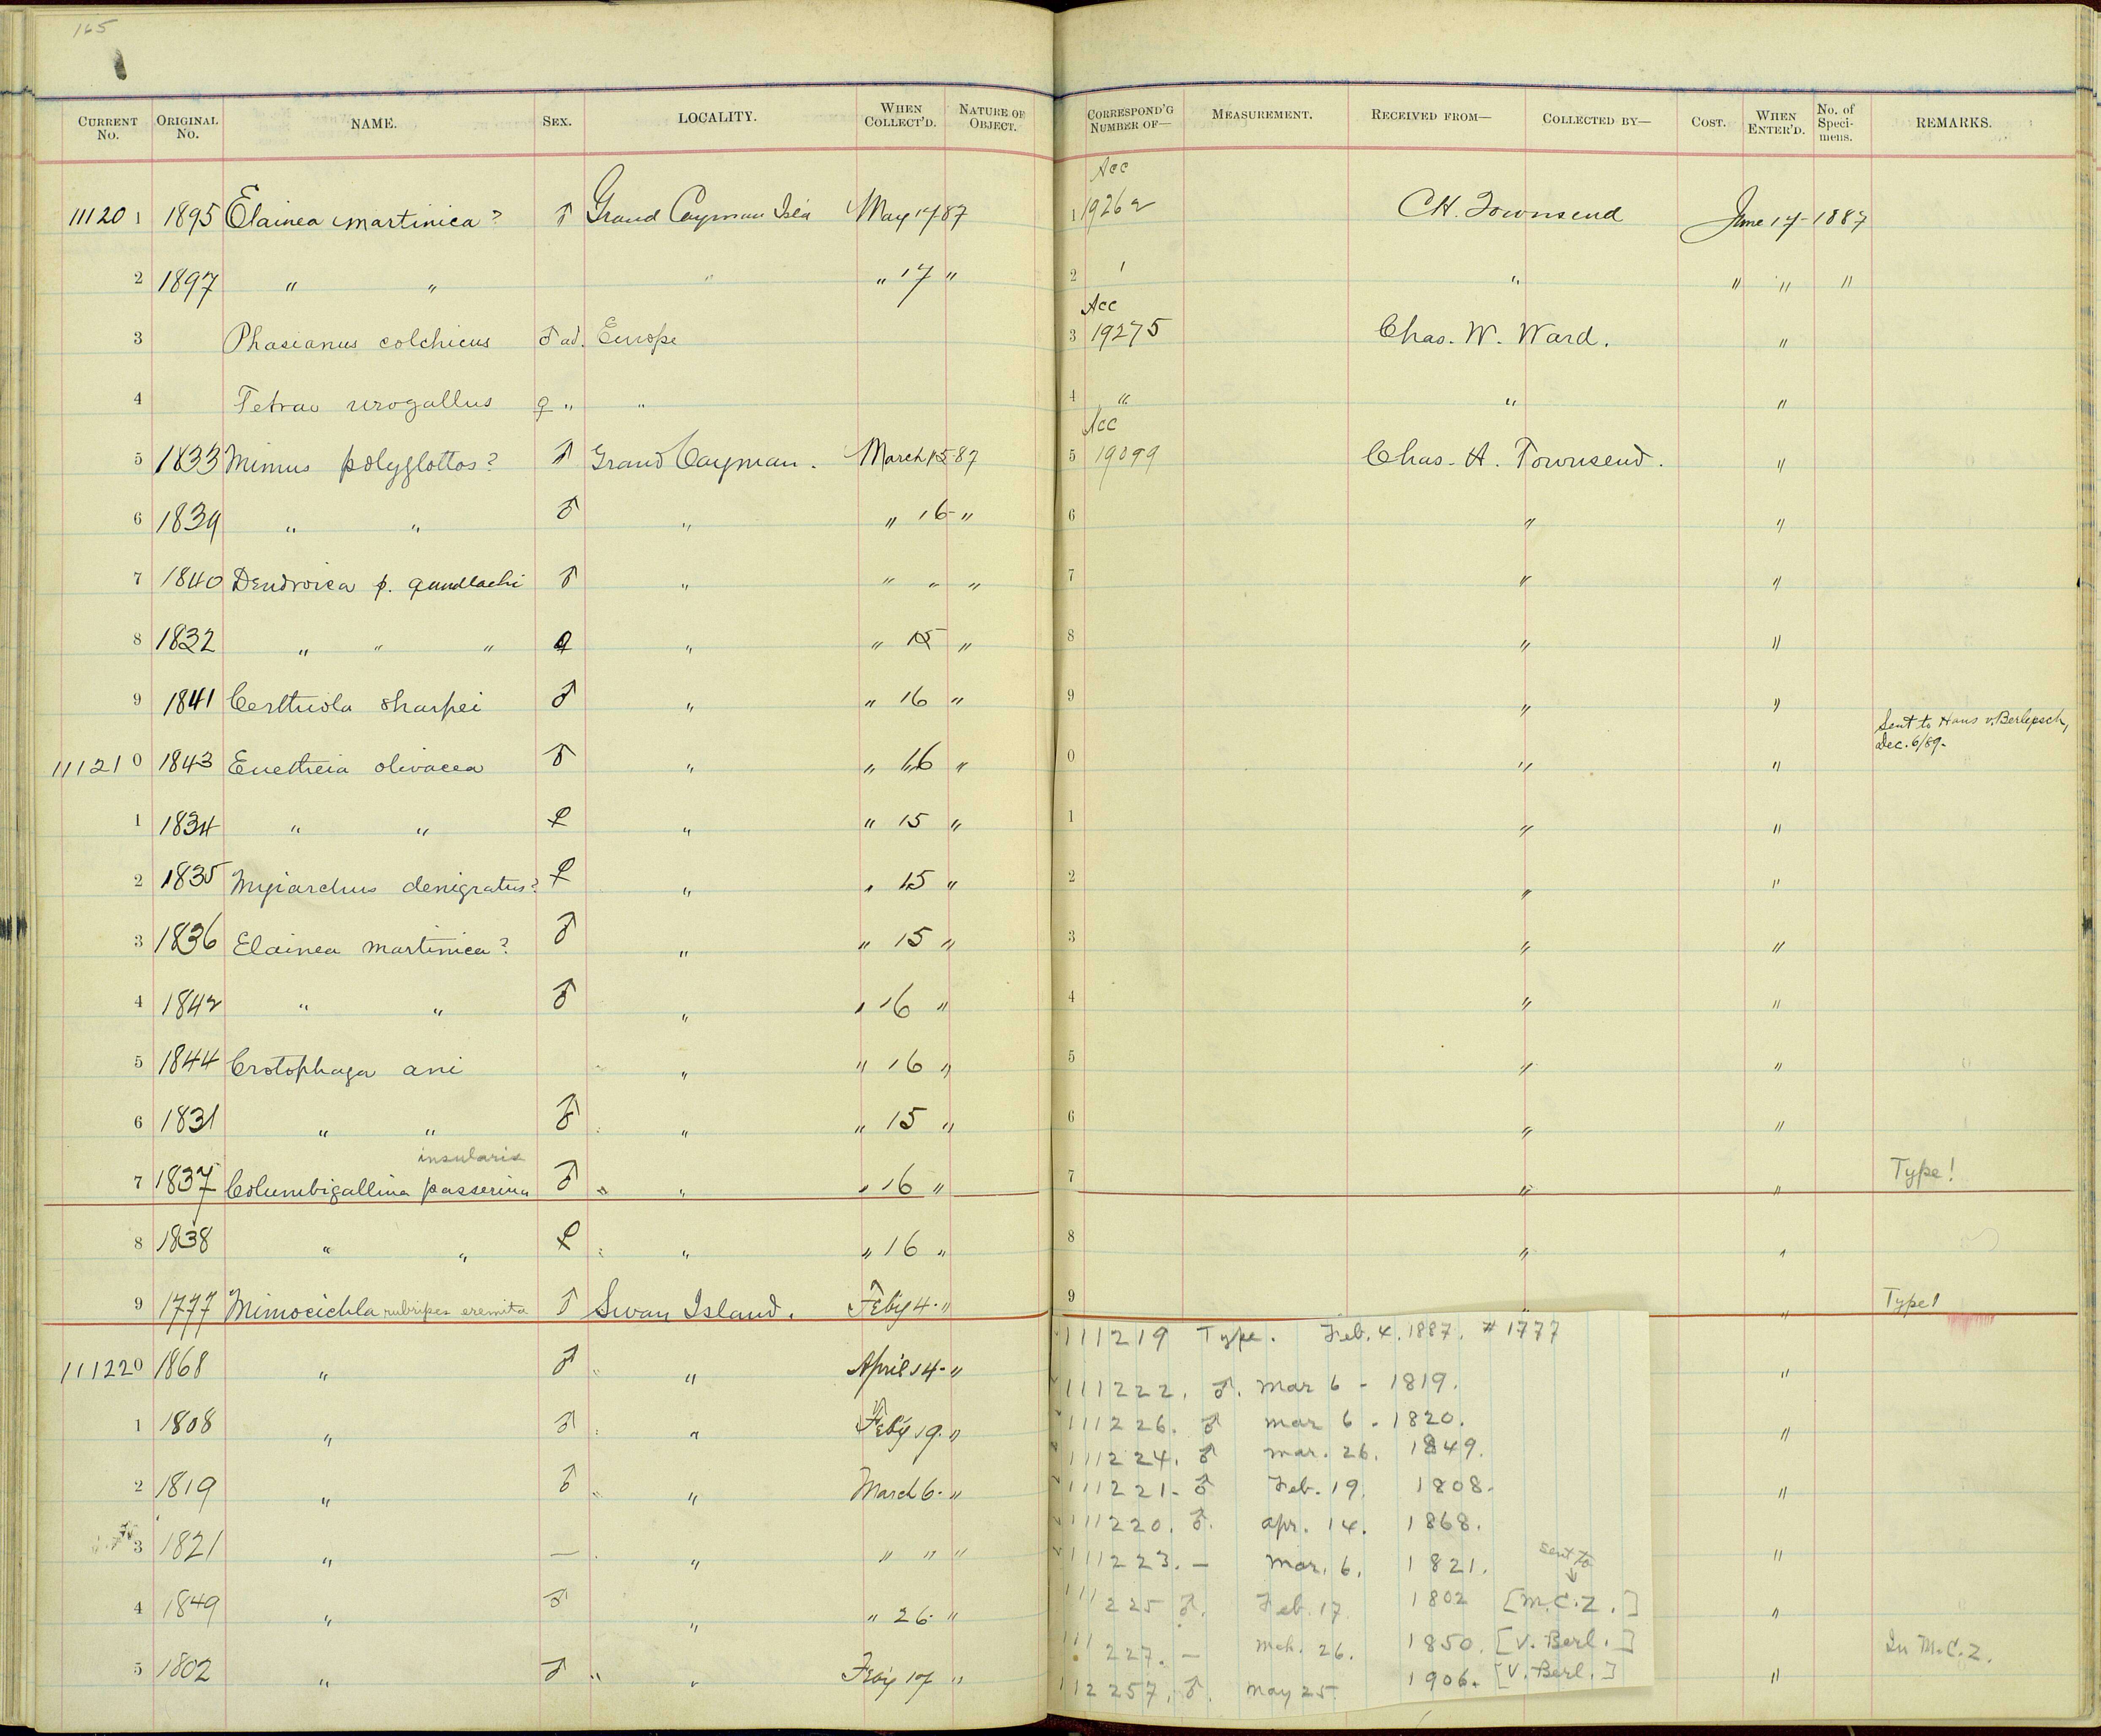 165
CURRENT No. ORIGINAL No. NAME. SEX. LOCALITY. WHEN COLLECT'D. NATURE OF OBJECT. CORRESPOND'G NUMBER OF— MEASUREMENT. RECEIVED FROM— COLLECTED BY— COST. WHEN ENTER'D. No. of Specimens. REMARKS.
Acc
11120 1 1895 Elainea martinica? ♂ Grand Cayman Isl'd May 17 87 1 19262 C.H. Townsend June 17-1887
2 1897 " " " " 17 " 2 ' " " " "
Acc
3 Phasianus colchicus ♂ ad. Europe 3 19275 Chas. W. Ward. "
4 Tetrao urogallus ♀ " " 4 " " "
Acc
5 1833 Mimus polyglottos? ♂ Grand Cayman. March 15 87 5 19099 Chas. H. Townsend. "
6 1839 " " ♂ " " 16 " 6 " "
7 1840 Dendroica p. gundlachi ♂ " " " " 7 " "
8 1832 " " " ♀ " " 15 " 8 " "
9 1841 Certhiola sharpei ♂ " " 16 " 9 " "
Sent to Hans v. Berlepsch,
Dec. 6/89-
111210 1843 Euetheia olivacea ♂ " " 16 " 0 " "
1 1834 " " ♀ " " 15 " 1 " "
2 1835 Myiarchus denigratus? ♀ " " 15 " 2 " "
3 1836 Elainea martinica? ♂ " " 15 " 3 " "
4 1842 " " ♂ " " 16 " 4 " "
5 1844 Crotophaga ani " " 16 " 5 " "
6 1831 " " ♂ " " 15 " 6 " "
insularis
7 1837 Columbigallina passerina ♂ " " " 16 " 7 " " Type!
8 1838 " " ♀ " " 16 " 8 " "
9 1777 Mimocichla rubripes eremita ♂ Swan Island. Feby 4. " 9 " " Type!
111220 1868 " ♂ " April 14. " "
1 1808 " ♂ " Feby 19. " "
2 1819 " ♂ " March 6. " "
3 1821 " — " " " " "
4 1849 " ♂ " " 26. " "
5 1802 " ♂ " " Feby 17 " " In M.C.Z.
111219 Type. Feb. 4. 1887. # 1777
111222. ♂. Mar 6 - 1819.
111226. ♂ Mar 6 - 1820.
111224. ♂ Mar. 26. 1849.
111221- ♂ Feb. 19. 1808.
111220. ♂. Apr. 14. 1868.
111223. — Mar. 6. 1821. sent to
111225 ♂. Feb. 17. 1802 [M.C.Z.]
111227. — Mch. 26. 1850. [V. Berl.]
112257. ♂. May 25. 1906. [V. Berl.]